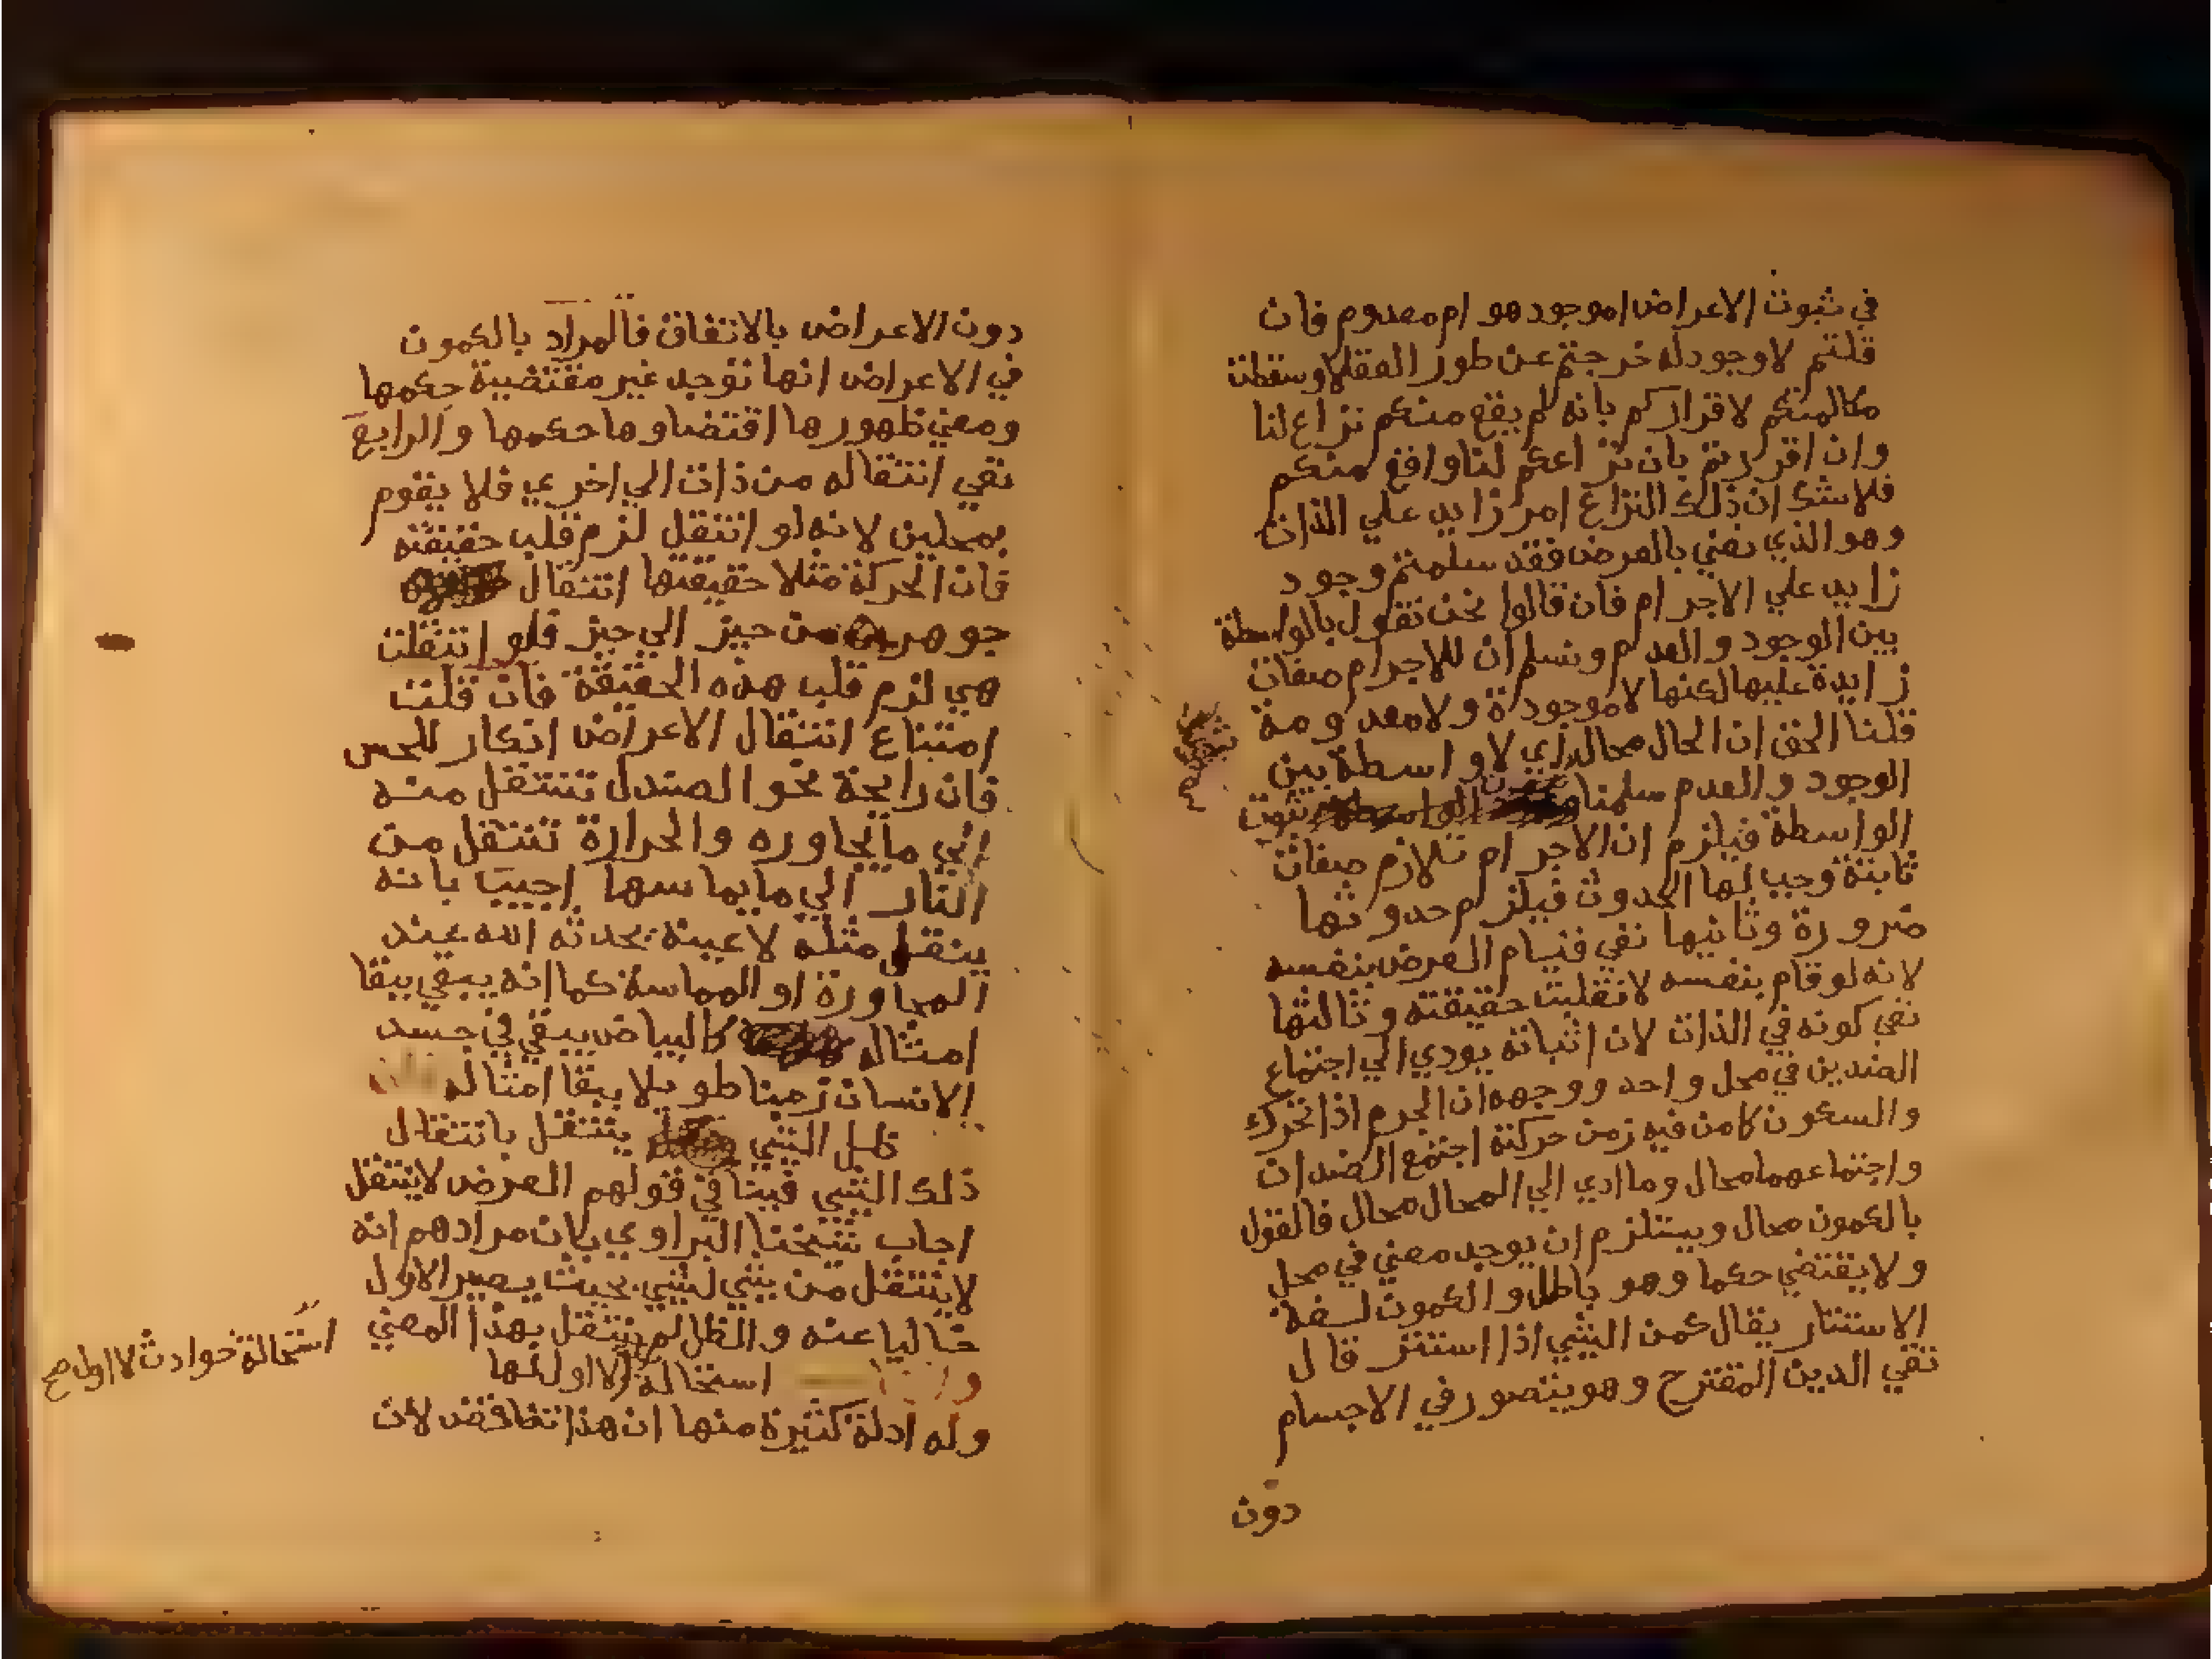 في ثبوت الاعراض اموجود هو ام معدوم فان
قلتم لا وجود له خرجتم عن طور العقلا وسقطت
مكالمتكم لاقراركم بانه لم يقع منكم نزاع لنا
وان اقررتم بان نزاعكم لنا واقع منكم
فلا شك ان ذلك النزاع امر زايد علي الذات
وهو الذي نعني بالعرض فقد سلمتم وجود
زايد علي الاجرام فان قالوا نحن نقول بالواسطة
بين الوجود والعدم ونسلم ان للاجرام صفات
زايدة عليها لكنها لا موجودة ولا معدومة
قلنا الحق ان الحال محال اي لا واسطة بين
الوجود والعدم سلمنا ثبوت
الواسطة فيلزم ان الاجرام تلازم صفات
ثابتة وجب لها الحدوث فيلزم حدوثها
ضرورة وثانيها نفي قيام العرض بنفسه
لانه لو قام بنفسه لانقلبت حقيقته وثالثها
نفي كونه في الذات لان اثباته يودي الي اجتماع
الضدين في محل واحد ووجهه ان الجرم اذا تحرك
والسكون كامن فيه زمن حركته اجتمع الضدان
واجتماعهما محال وما ادي الي المحال محال فالقول
بالكمون محال ويستلزم ان يوجد معني في محل
ولا يقتضي حكما وهو باطل والكمون لغة
الاستتار يقال كمن الشي اذا استتر قال
تقي الدين المقترح وهو يتصور في الاجسام
دون
دون الاعراض بالاتفاق فالمراد بالكمون
في الاعراض انها توجد غير مقتضية حكمها
ومعني ظهورها اقتضاوها حكمها والرابع
نفي انتقاله من ذات الي اخري فلا يقوم
بمحلين لانه لو انتقل لزم قلب حقيقته
فان الحركة مثلا حقيقتها انتقال
جوهر من حيز الي حيز فلو انتقلت
هي لزم قلب هذه الحقيقة فان قلت
امتناع انتقال الاعراض انكار للحس
فان رايحة نحو الصندل تنتقل منه
الي ما يجاوره والحرارة تنتقل من
النار الي ما يماسها اجيب بانه
ينتقل مثله لا عينه يحدثه الله عند
المجاورة او المماسة كما انه يبقي ببقا
امثاله كالبياض يبقي في جسد
الانسان زمنا طويلا ببقا امثاله
ظل الشي ينتقل بانتقال
ذلك الشي فينافي قولهم العرض لا ينتقل
اجاب شيخنا البراوي بان مرادهم انه
لا ينتقل من شي لشي بحيث يصير الاول
خاليا عنه والظل لم ينتقل بهذا المعني
استحالة لا اول لها
وله ادلة كثيرة منها ان هذا تناقض لان
استحالة حوادث لا اول صح